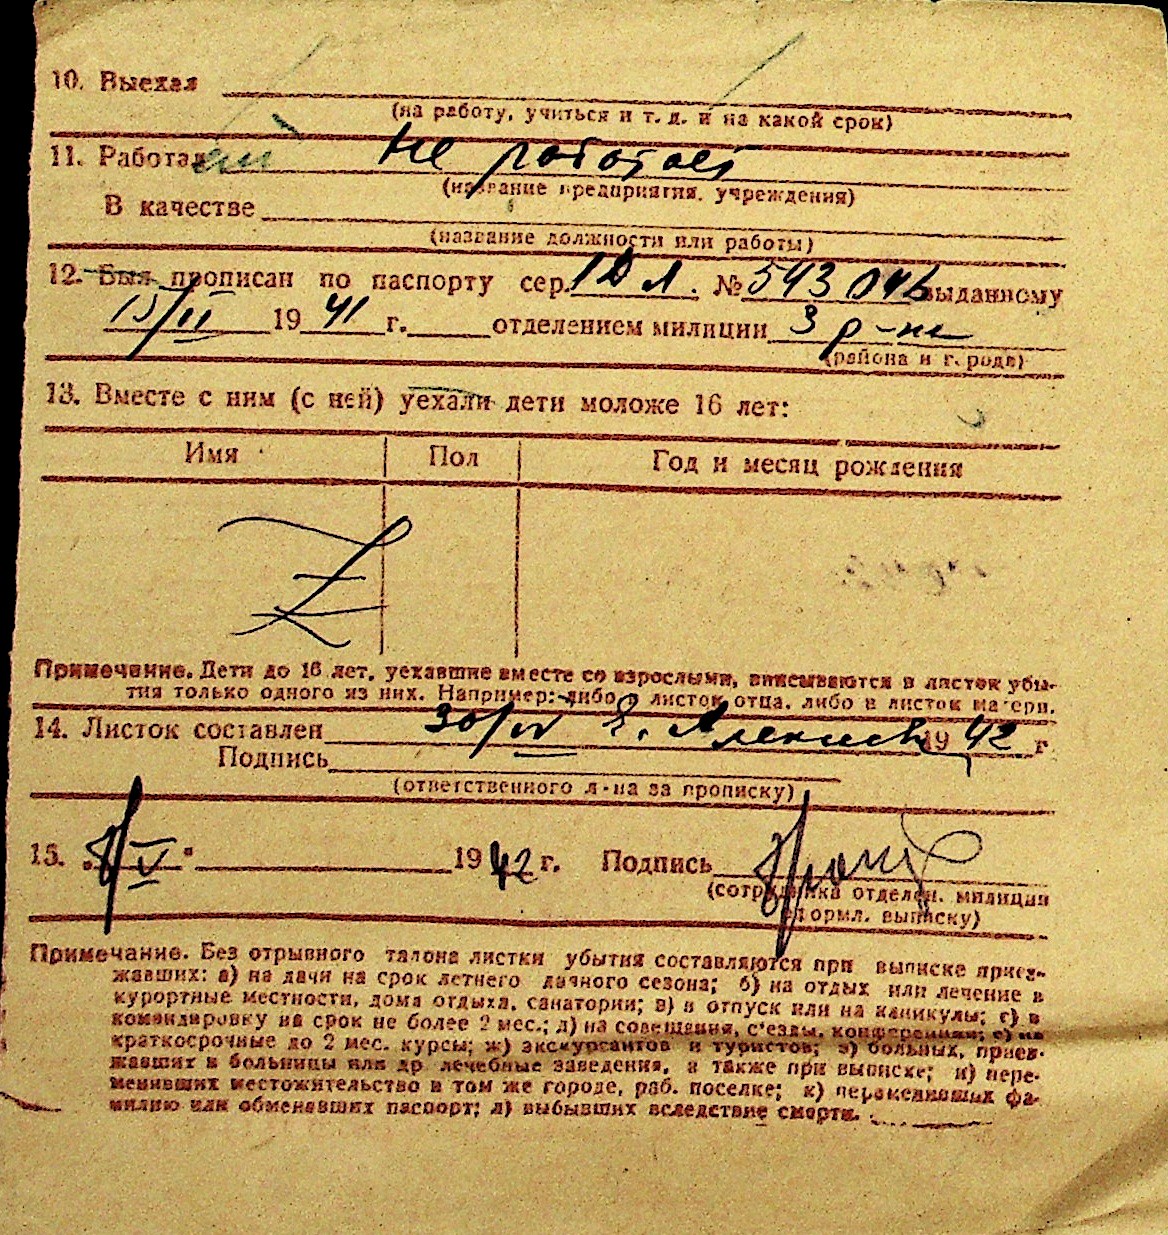 10. Выехал
(на работу, учиться и т. д. и на какой срок)
11. Работал не работает
(название предприятия, учреждения)
В качестве
(название должности или работы)
12. Был прописан по паспорту сер. 1 Д Л. № 543 046 выданному
15/II 1941 г. отделением милиции 3 р-на
(района и города)
13. Вместе с ним (с ней) уехали дети моложе 16 лет:
Имя Пол Год и месяц рождения
Z
Примечание. Дети до 16 лет, уехавшие вместе со взрослыми, вписываются в листок убы-
тия только одного из них. Например: либо в листок отца, либо в листок матери.
14. Листок составлен 30/IV 1942 г
Подпись
(ответственного л-на за прописку)
15. „ /V " 1942 г. Подпись
(сотрудника отделен. милиции
оформл. выписку)
Примечание. Без отрывного талона листки убытия составляются при выписке приез-
жавших: а) на дачи на срок летнего дачного сезона; б) на отдых или лечение в
курортные местности, дома отдыха, санатории; в) в отпуск или на каникулы; г) в
командировку на срок не более 2 мес.; д) на совещания, с'езды, конференции; е) на
краткосрочные до 2 мес. курсы; ж) экскурсантов и туристов; з) больных, приез-
жавших в больницы или др лечебные заведения, а также при выписке; и) пере-
менивших местожительство в том же городе, раб. поселке; к) переменивших фа-
милию или обменявших паспорт; л) выбывших вследствие смерти.